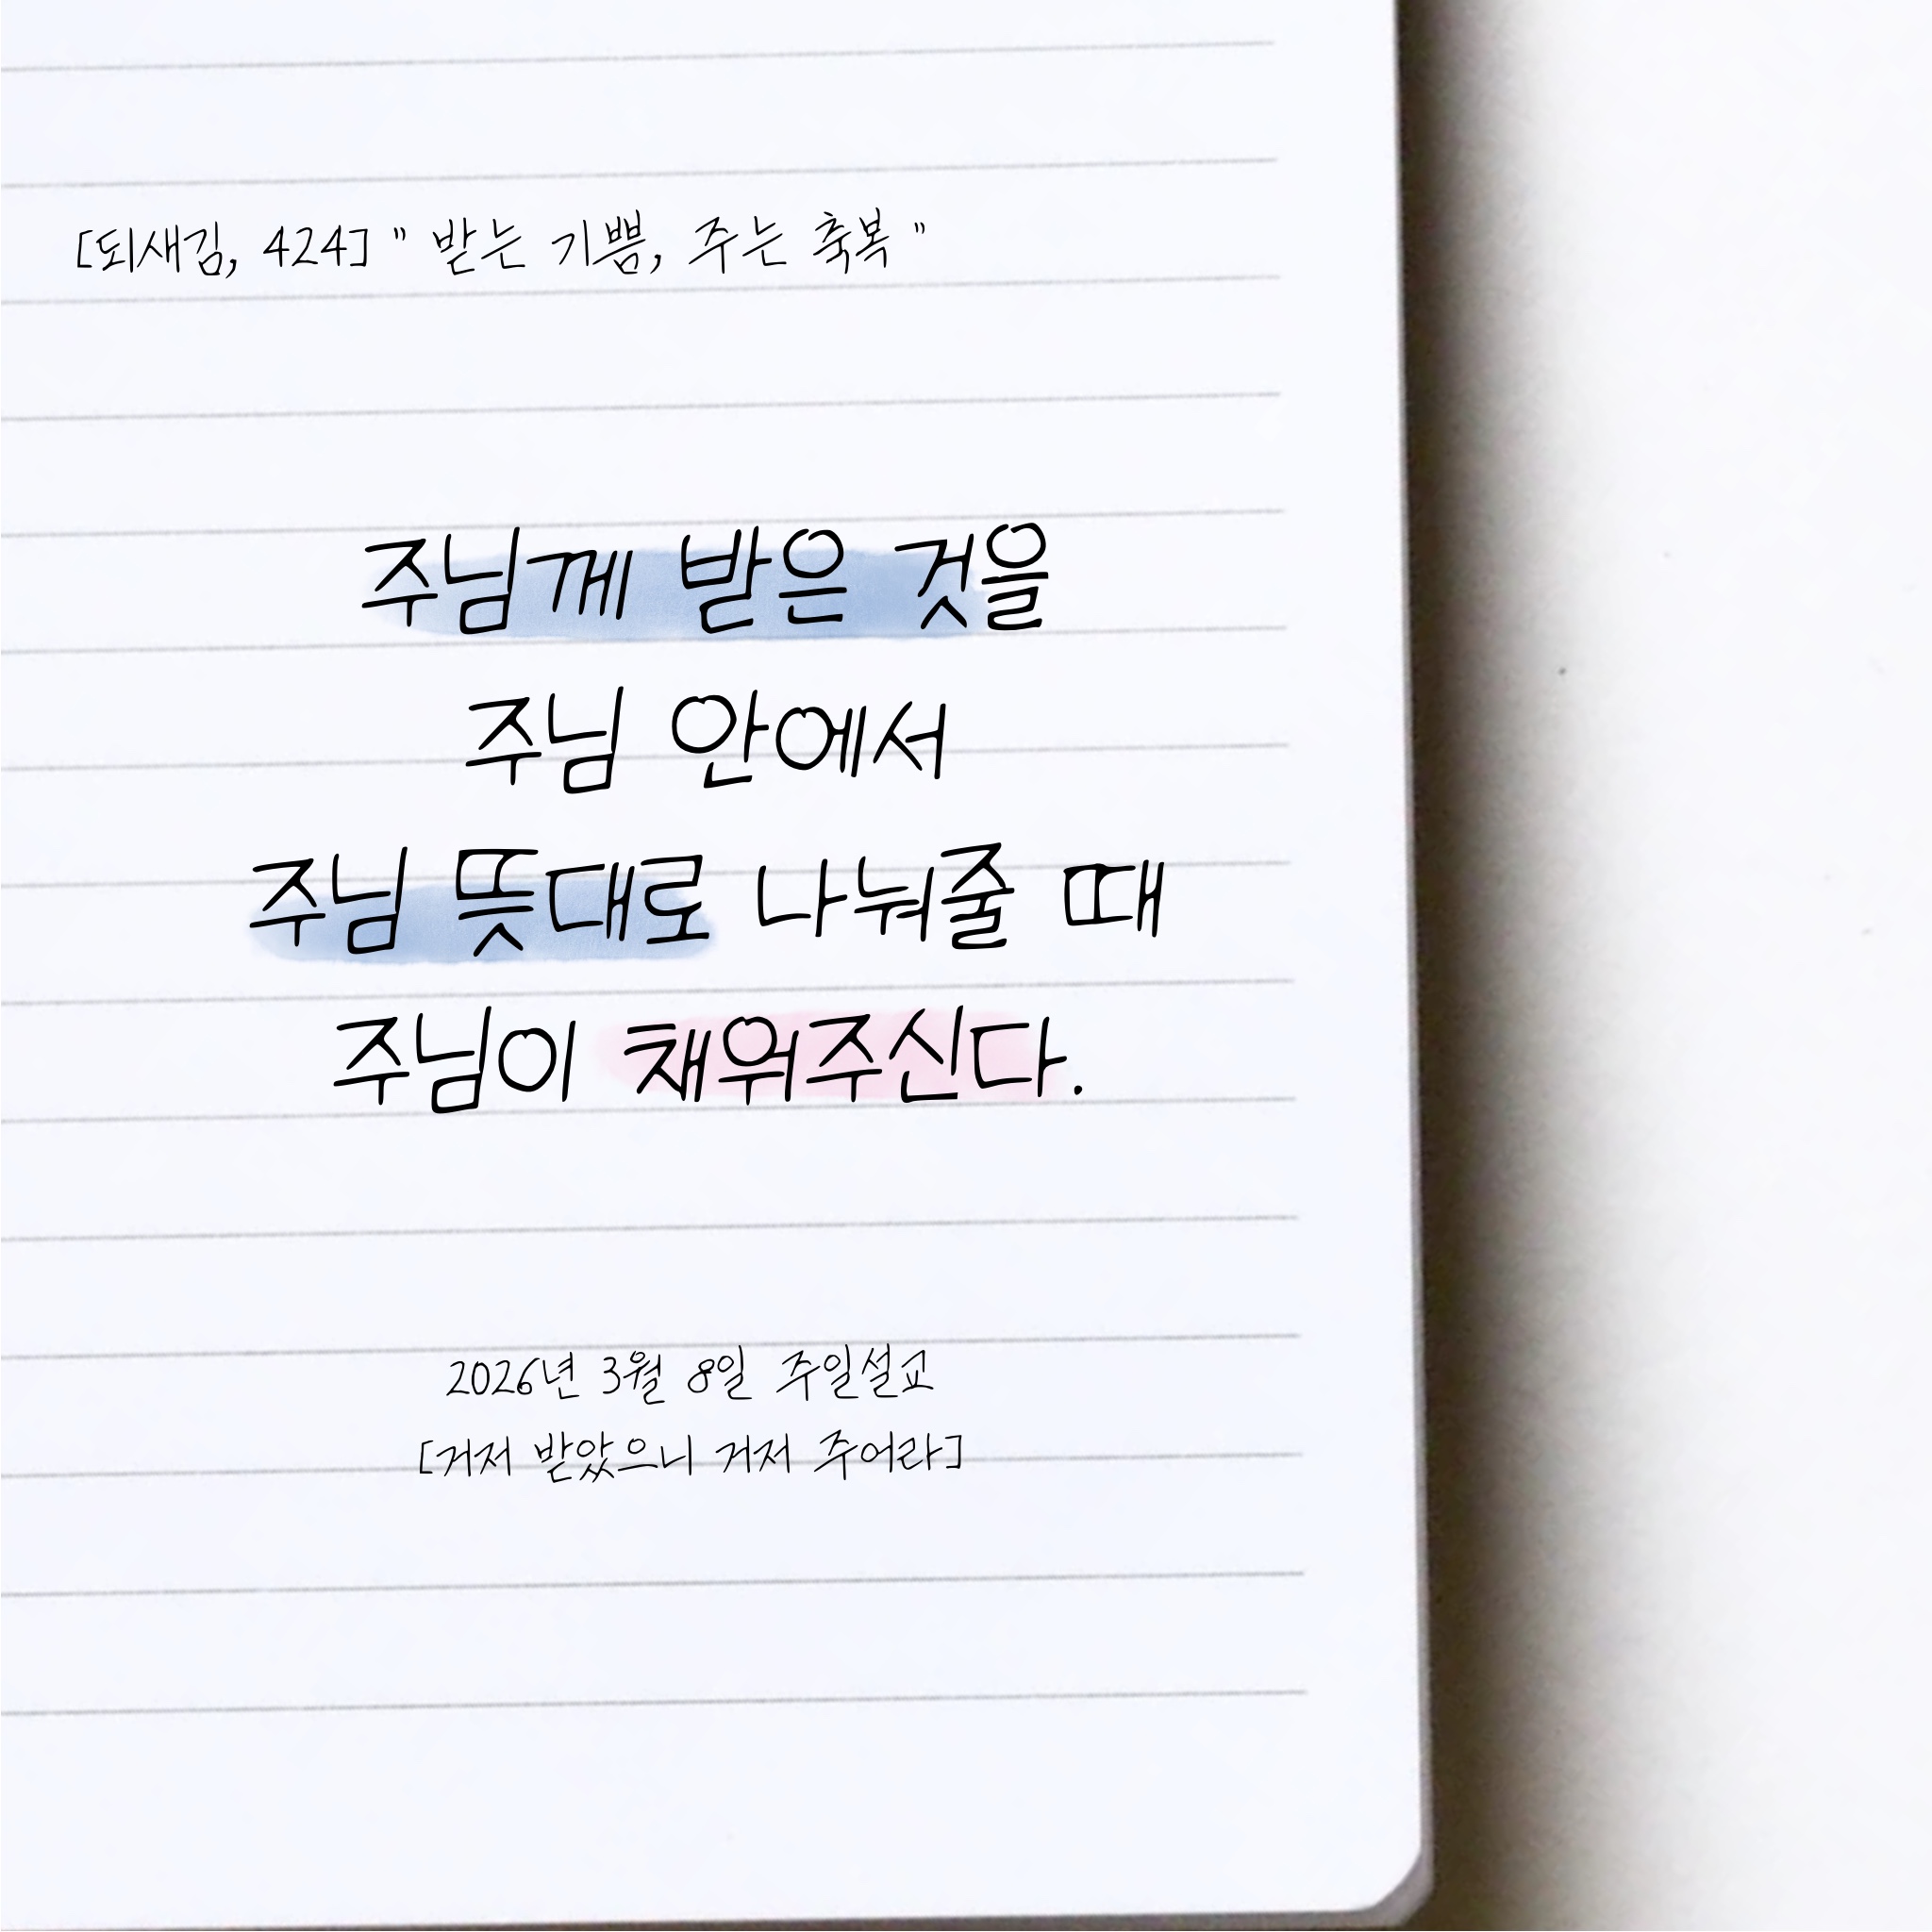 [되새김, 424] " 받는 기쁨, 주는 축복 "
주님께 받은 것을
주님 안에서
주님 뜻대로 나눠줄 때
주님이 채워주신다.
2026년 3월 8일 주일설교
[거저 받았으니 거저 주어라]